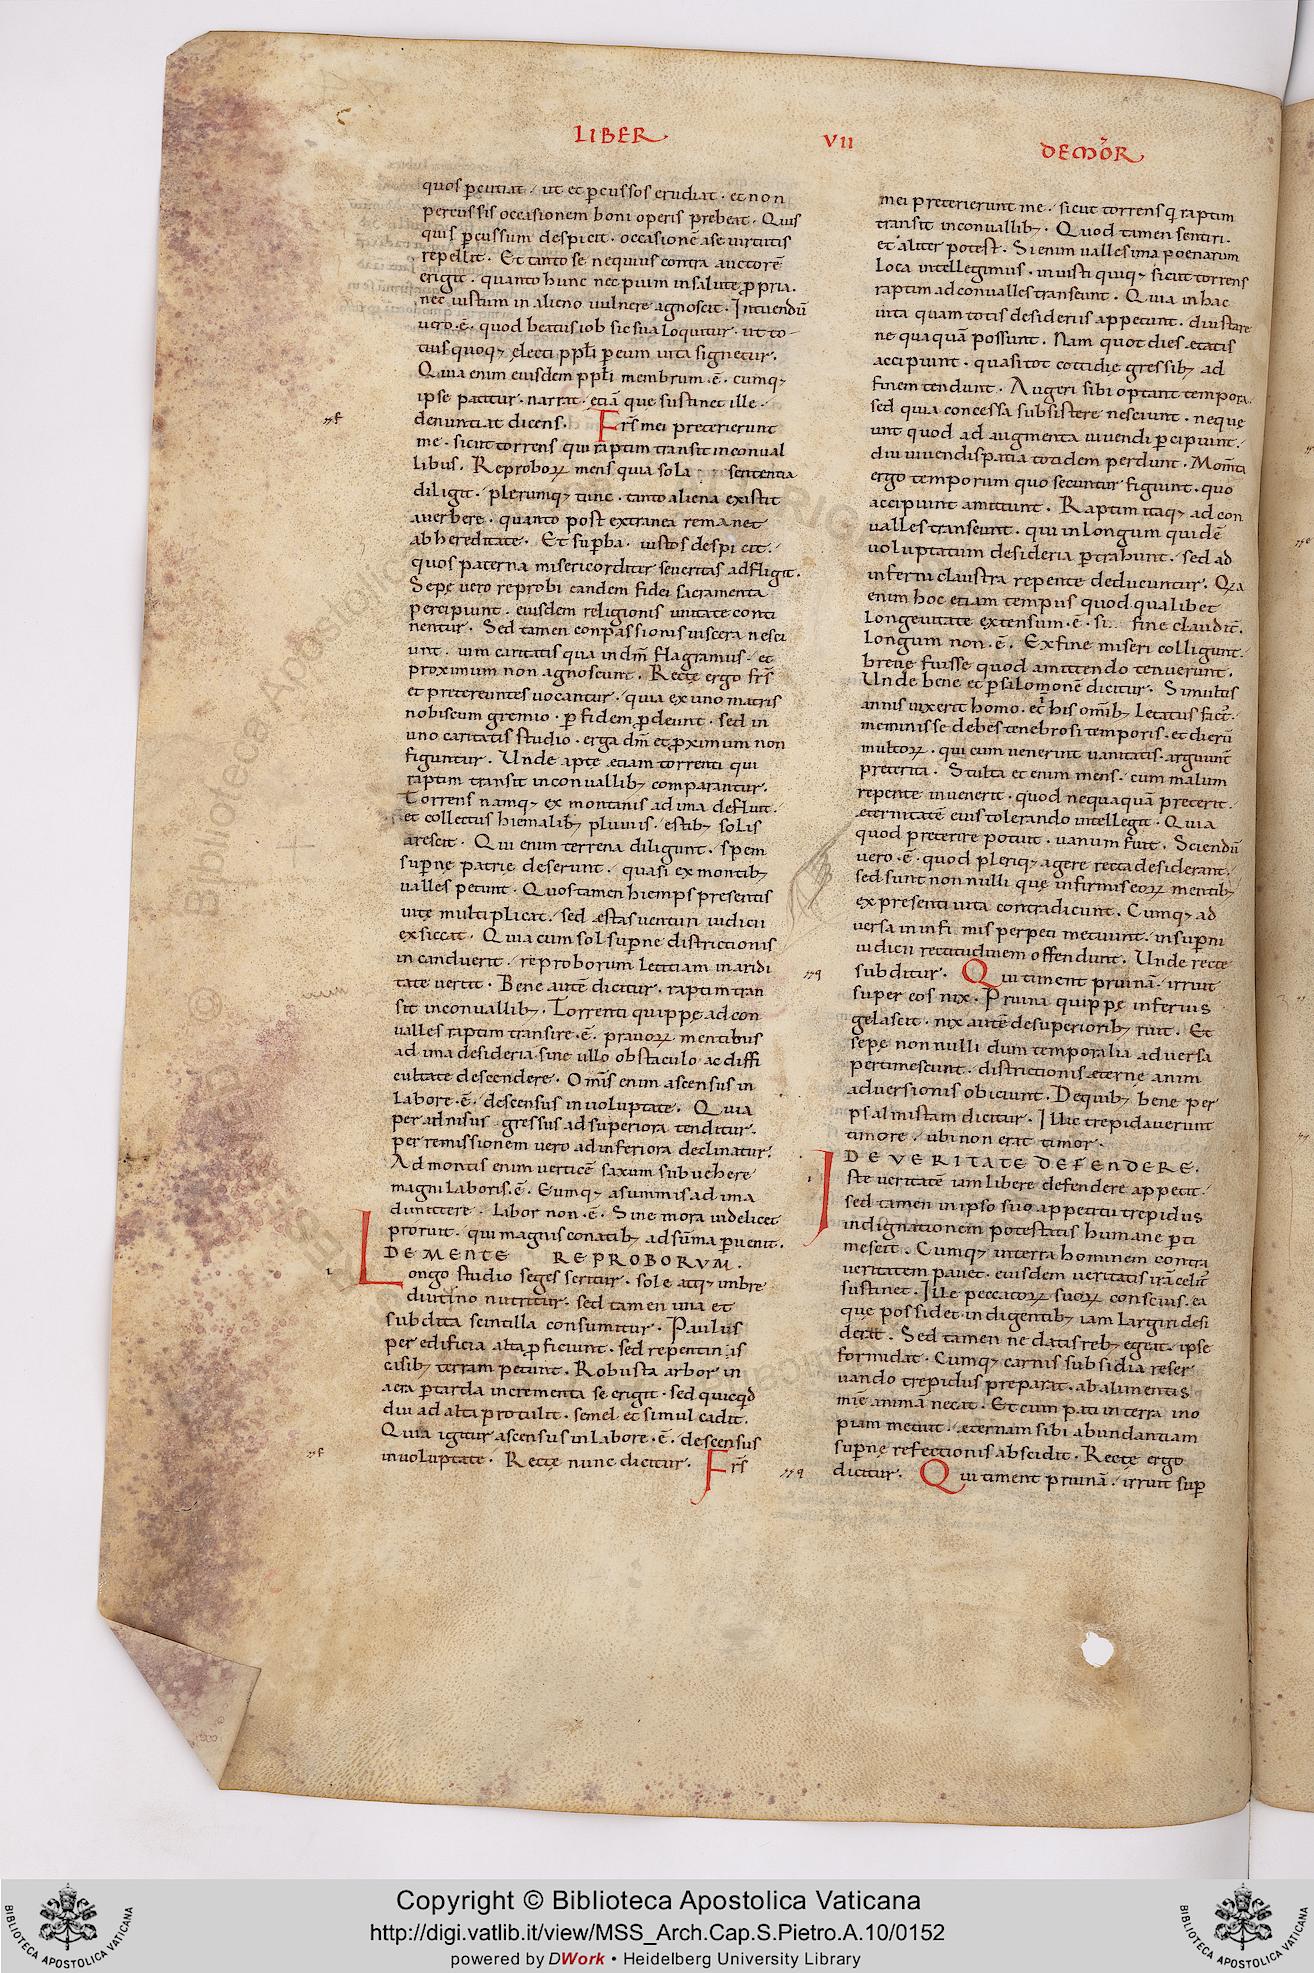 LIBER VII DE MOR̄
quos p̄cutiat / ut et p̄cussos erudiat · et non
percussis occasionem boni operis prebeat · Quis
quis p̄cussum despicit · occasionē a se uirtutis
repellit · Et tanto se nequius contra auctorē
erigit · quanto hunc nec pium in salute p̄pria ·
nec iustum in alieno uulnere agnoscit · Intuendū
uero · ē · quod beatus iob sic sua loquitur · ut to
tius quoq; electi pp̄li p̄ eum uita signetur ·
Quia enim eiusdem pp̄li membrum · ē · cumq;
ipse patitur · narrat · etiā que sustinet ille ·
denuntiat dicens · Fr̄s mei preterierunt
me · sicut torrens qui raptim transit in conual
libus · Reproboꝝ mens quia sola sententia
diligit · plerumq; tunc · tanto aliena existit
a uerbere · quanto post extranea remanet
ab hereditate · Et sup̄ba · iustos despicit ·
quos paterna misericorditer seueritas adfligit ·
Sepe uero reprobi eandem fidei sacramenta
percipiunt · eiusdem religionis unitate conti
nentur · Sed tamen conpassionis uiscera nesci
unt · uim caritatis qua in dm̄ flagramus · et
proximum non agnoscunt · Recte ergo fr̄s
et pretereuntes uocantur · quia ex uno matris
nobiscum gremio · p̄ fidem p̄deunt · sed in
uno caritatis studio · erga dm̄ et p̄ximum non
figuntur · Unde apte etiam torrenti qui
raptim transit in conuallib; comparantur ·
Torrens namq; ex montanis ad ima defluit ·
et collectus hiemalib; pluuiis · estib; solis
arescit · Qui enim terrena diligunt · spem
sup̄ne patrie deserunt · quasi ex montib;
ualles petunt · Quos tamen hiemps presentis
uite multiplicat · sed estas uenturi iudicii
exsiccat · Quia cum sol sup̄ne districtionis
incanduerit · reproborum letitiam in aridi
tate uertit · Bene autē dicitur · raptim tran
sit in conuallib; · Torrenti quippe ad con
ualles raptim transire · ē · prauoꝝ mentibus
ad ima desideria sine ullo obstaculo ac diffi
cultate descendere · Om̄is enim ascensus in
labore · ē · descensus in uoluptate · Quia
per adnisus gressus ad superiora tenditur ·
per remissionem uero ad inferiora declinatur ·
Ad montis enim uerticē saxum subuehere
magni laboris · ē · Eumq; a summis ad ima
dimittere · labor non · ē · Sine mora uidelicet
proruit · qui magnis conatib; ad sūma p̄uenit ·
DE MENTE REPROBORVM ·
Longo studio seges seritur · sole atq; imbre
diutino nutritur · sed tamen una et
subdita scintilla consumitur · Paulus
per edificia alta p̄ficiunt · sed repentinis
casib; terram petunt · Robusta arbor in
aera p̄ tarda incrementa se erigit · sed quicqd
diu ad alta protulit · semel et simul cadit ·
Quia igitur ascensus in labore · ē · descensus
in uoluptate · Recte nunc dicitur · Fr̄s
mei preterierunt me · sicut torrens q raptim
transit in conuallib; · Quod tamen sentiri ·
et aliter potest · Si enim ualles ima poenarum
loca intellegimus · iniusti quiq; sicut torrens
raptim ad conualles transeunt · Quia in hac
uita quam totis desideriis appetunt · diu stare
nequaquā possunt · Nam quot dies etatis
accipiunt · quasi tot cottidie gressib; ad
finem tendunt · Augeri sibi optant tempora ·
sed quia concessa subsistere nesciunt · neque
unt quod ad augmenta uiuendi p̄cipiunt ·
diu uiuendi spatia totidem perdunt · Mom̄ta
ergo temporum quo secuntur figiunt · quo
accipiunt amittunt · Raptim itaq; ad con
ualles transeunt · qui in longum quidē
uoluptatum desideria p̄trahunt · sed ad
inferni claustra repente deducuntur · Qa
enim hoc etiam tempus quod qualibet
longeuitate extensum · ē · si fine claudit̄ ·
longum non · ē · Ex fine miseri colligunt ·
breue fuisse quod amittendo tenuerunt ·
Unde bene et p̄ salomonē dicitur · Si multis
annis uixerit homo · et his om̄ib; letatus fact̄ ·
meminisse debet tenebrosi temporis · et dierū
multoꝝ · qui cum uenerint uanitatis · arguunt̄
preterita · Stulta et enim mens · cum malum
repente inuenerit · quod nequaquā preterit ·
eternitatē eius tolerando intellegit · Quia
quod preterire potuit · uanum fuit · Sciendū
uero · ē · quod pleriq; agere recta desiderant ·
sed sunt non nulli que infirmis eoꝝ mentib;
ex presenti uita contradicunt · Cumq; ad
uersa in infimis perpeti metuunt · in sup̄ni
iudicii rectitudinem offendunt · Unde recte
subditur · Qui timent pruinā · irruit
super eos nix · Pruina quippe inferius
gelascit · nix autē de superiorib; ruit · Et
sepe non nulli dum temporalia aduersa
pertimescunt · districtionis eterne anim
aduersionis obiciunt · De quib; bene per
psalmistam dicitur · Illic trepidauerunt
timore · ubi non erat timor ·
DE VERITATE DEFENDERE ·
Iste ueritatē iam libere defendere appetit ·
sed tamen in ipso suo appetitu trepidus
indignationem potestatis humane p̄ti
mescit · Cumq; in terra hominem contra
ueritatem pauet · eiusdem ueritatis irā celit̄
sustinet · Ille peccatoꝝ suoꝝ conscius · ea
que possidet indigentib; iam largiri desi
derat · Sed tamen ne datis reb; egeat · ipse
formidat · Cumq; carnis subsidia reser
uando trepidus preparat · ab alimentis
mīe animā necat · Et cum pati in terra ino
piam metuit · eternam sibi abundantiam
sup̄ne refectionis abscidit · Recte ergo
dicitur · Qui timent pruinā · irruit sup̄
Copyright © Biblioteca Apostolica Vaticana
http://digi.vatlib.it/view/MSS_Arch.Cap.S.Pietro.A.10/0152
powered by DWork • Heidelberg University Library
BIBLIOTECA APOSTOLICA VATICANA
BIBLIOTECA APOSTOLICA VATICANA